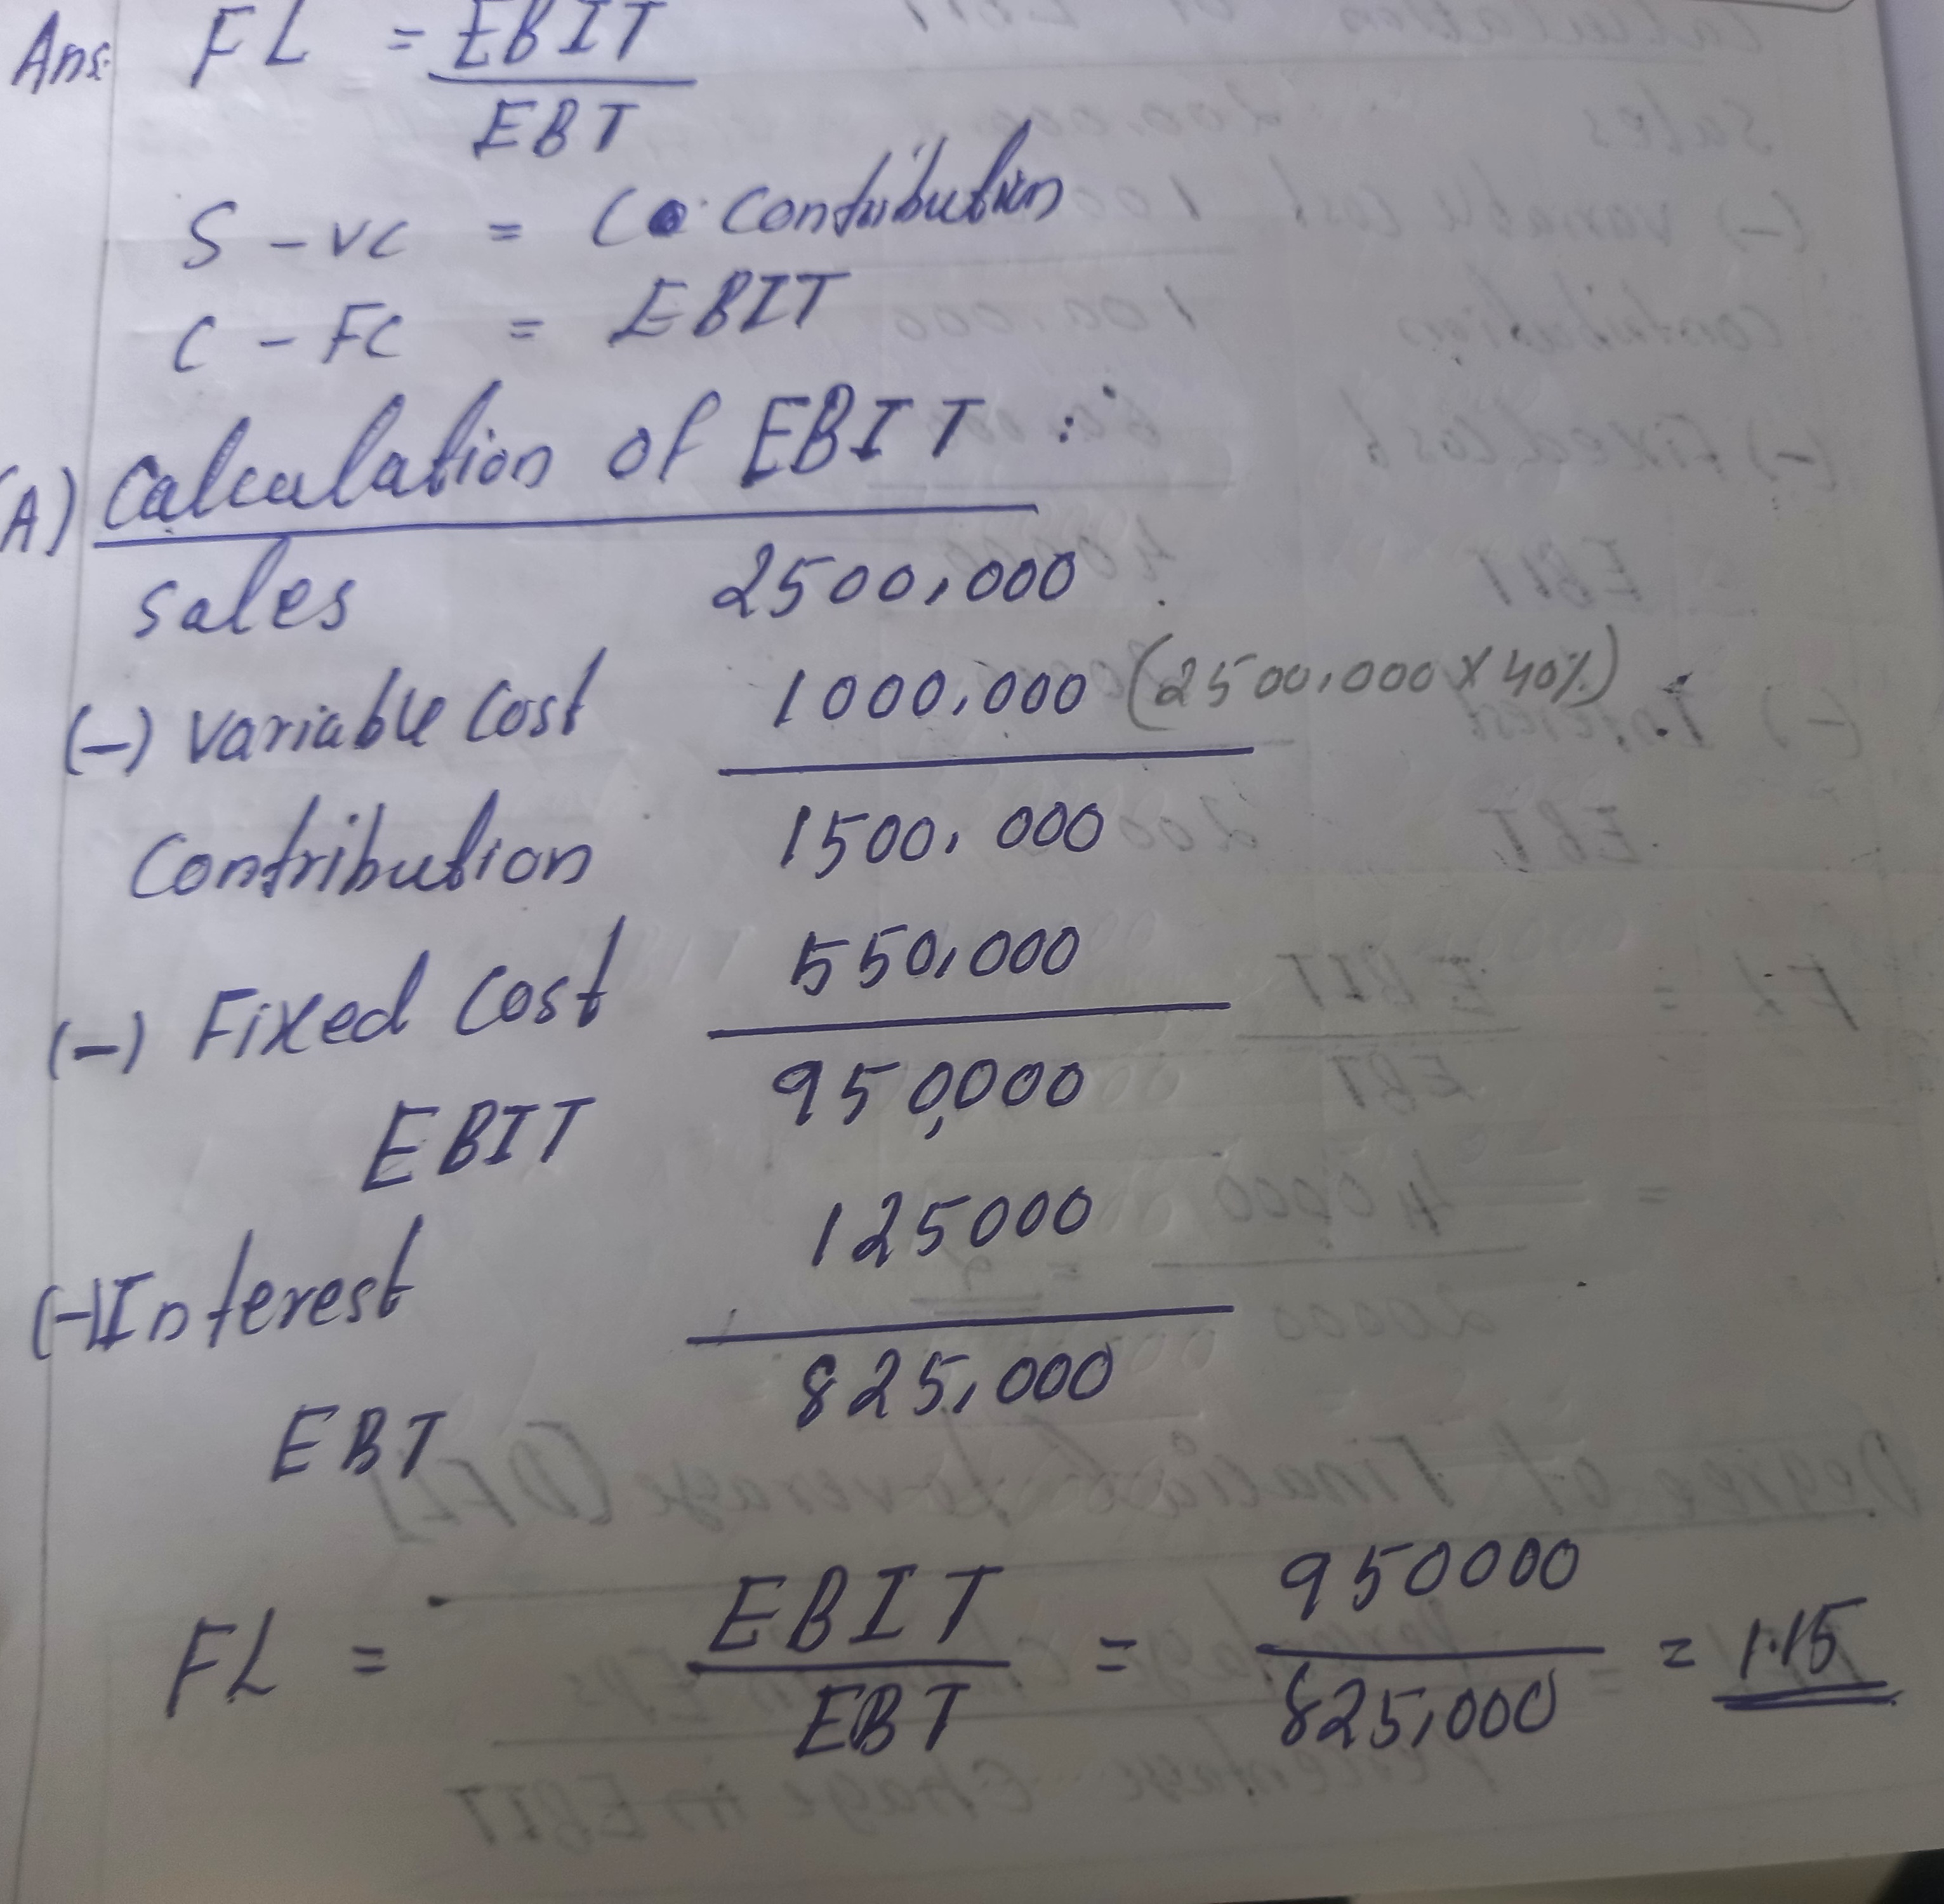 Ans: FL = EBIT
EBT
S - VC = C Contribution
C - FC = EBIT
(A) Calculation of EBIT :
Sales 2500,000
(-) Variable Cost 1000,000 (2500,000 X 40%)
Contribution 1500,000
(-) Fixed Cost 550,000
EBIT 950,000
(-) Interest 125000
EBT 825,000
FL = EBIT = 950000 = 1.15
EBT 825,000